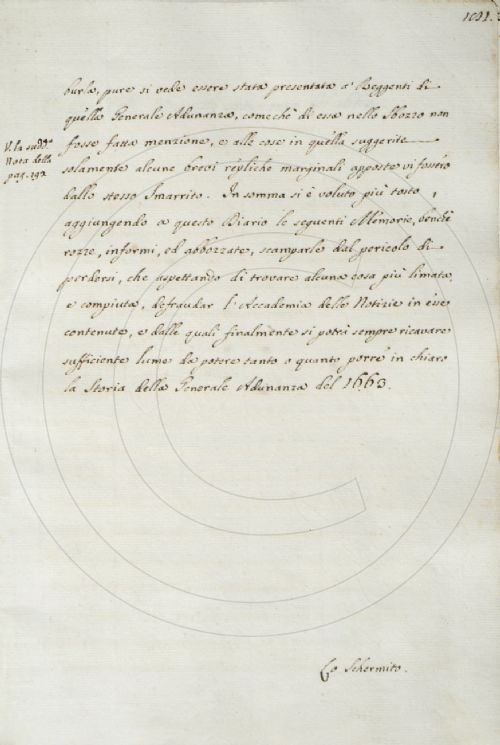 burla, pure si vede essere stata presentata a' Reggenti di
quella Generale Adunanza, comechè di essa nello Sbozzo non
fosse fatta menzione, e alle cose in quella suggerite
V. la sudd.ª
Nota della
pag. 192
solamente alcune brevi repliche marginali apposte vi fossero
dallo stesso Smarrito. In somma si è voluto più tosto,
aggiungendo a questo Diario le seguenti Memorie, benchè
rozze, informi, ed abbozzate, scamparle dal pericolo di
perdersi, che aspettando di trovare alcuna cosa più limata,
e compiuta, defraudar l'Accademia delle Notizie in esse
contenute, e dalle quali finalmente si potrà sempre ricavare
sufficiente lume da potere tanto o quanto porre in chiaro
la Storia della Generale Adunanza del 1663.
Lo Schermito.